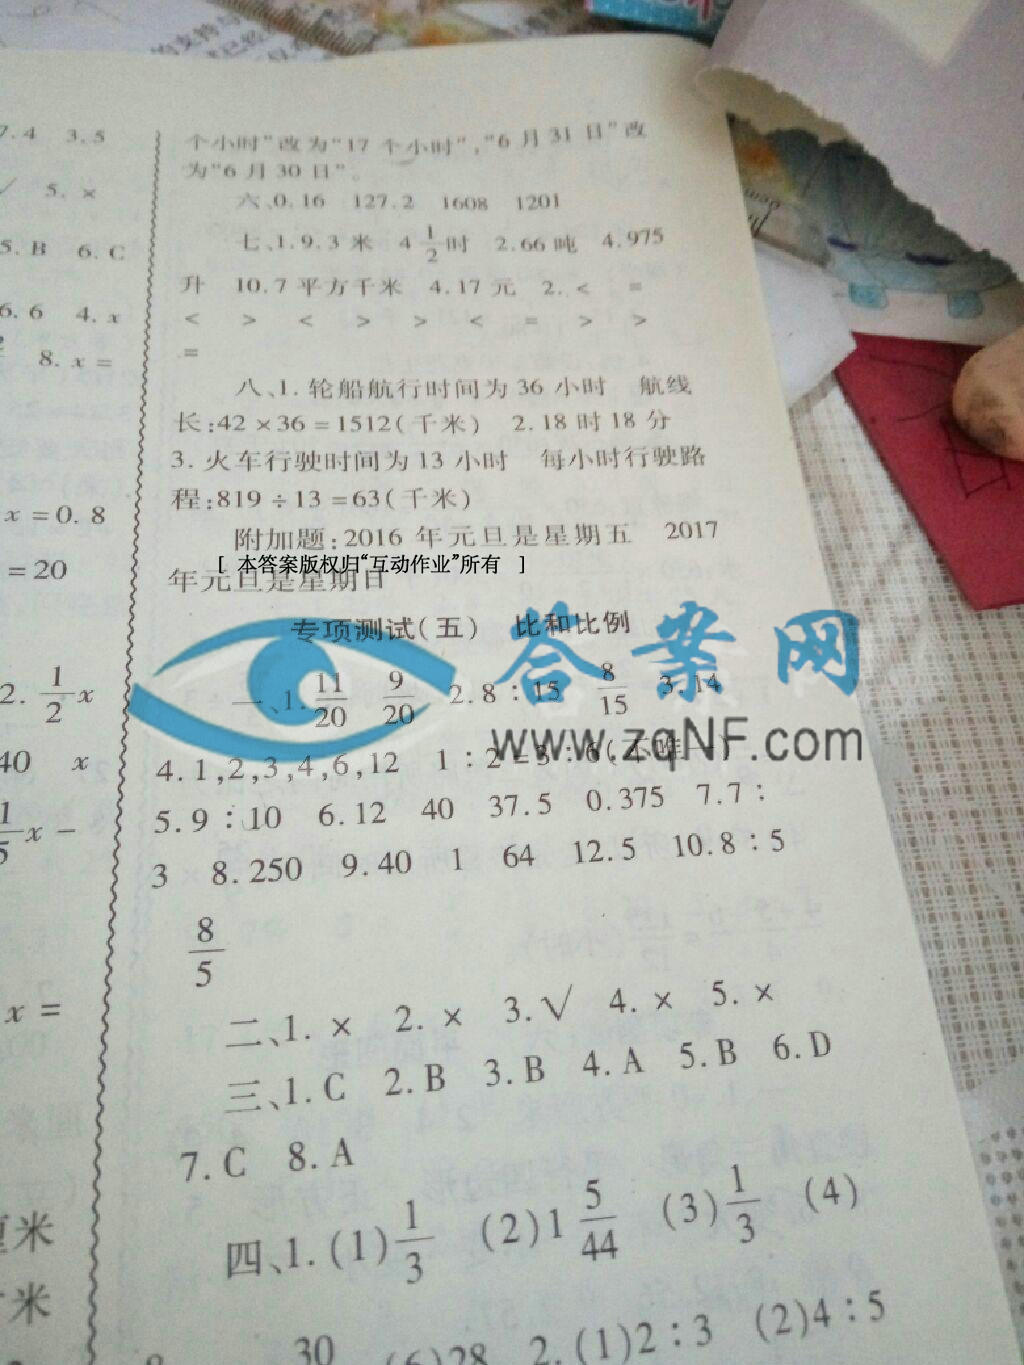 7.4 3.5
5. ×
5. B 6. C
6.6 4. x
8. x =
x = 0. 8
= 20
2. 1/2 x
40 x
x −
x =
米
米
个小时”改为“17 个小时”,“6 月 31 日”改
为“6 月 30 日”。
六、0.16 127.2 1608 1201
七、1.9.3 米 4 1/2 时 2.66 吨 4.975
升 10.7 平方千米 4.17 元 2. < =
< > < > > < = > >
=
八、1. 轮船航行时间为 36 小时 航线
长:42 × 36 = 1512(千米) 2. 18 时 18 分
3. 火车行驶时间为 13 小时 每小时行驶路
程:819 ÷ 13 = 63(千米)
附加题:2016 年元旦是星期五 2017
[ 本答案版权归“互动作业”所有 ]
年元旦是星期日
专项测试(五) 比和比例
答案网
www.zqNF.com
一、1. 11/20 9/20 2. 8 : 15 8/15 3. 14
4. 1,2,3,4,6,12 1 : 2 = 3 : 6(不唯一)
5. 9 : 10 6. 12 40 37.5 0.375 7. 7 :
3 8. 250 9. 40 1 64 12.5 10. 8 : 5
8/5
二、1. × 2. × 3. √ 4. × 5. ×
三、1. C 2. B 3. B 4. A 5. B 6. D
7. C 8. A
四、1. (1) 1/3 (2) 1 5/44 (3) 1/3 (4)
30 (6)28 2. (1)2 : 3 (2)4 : 5